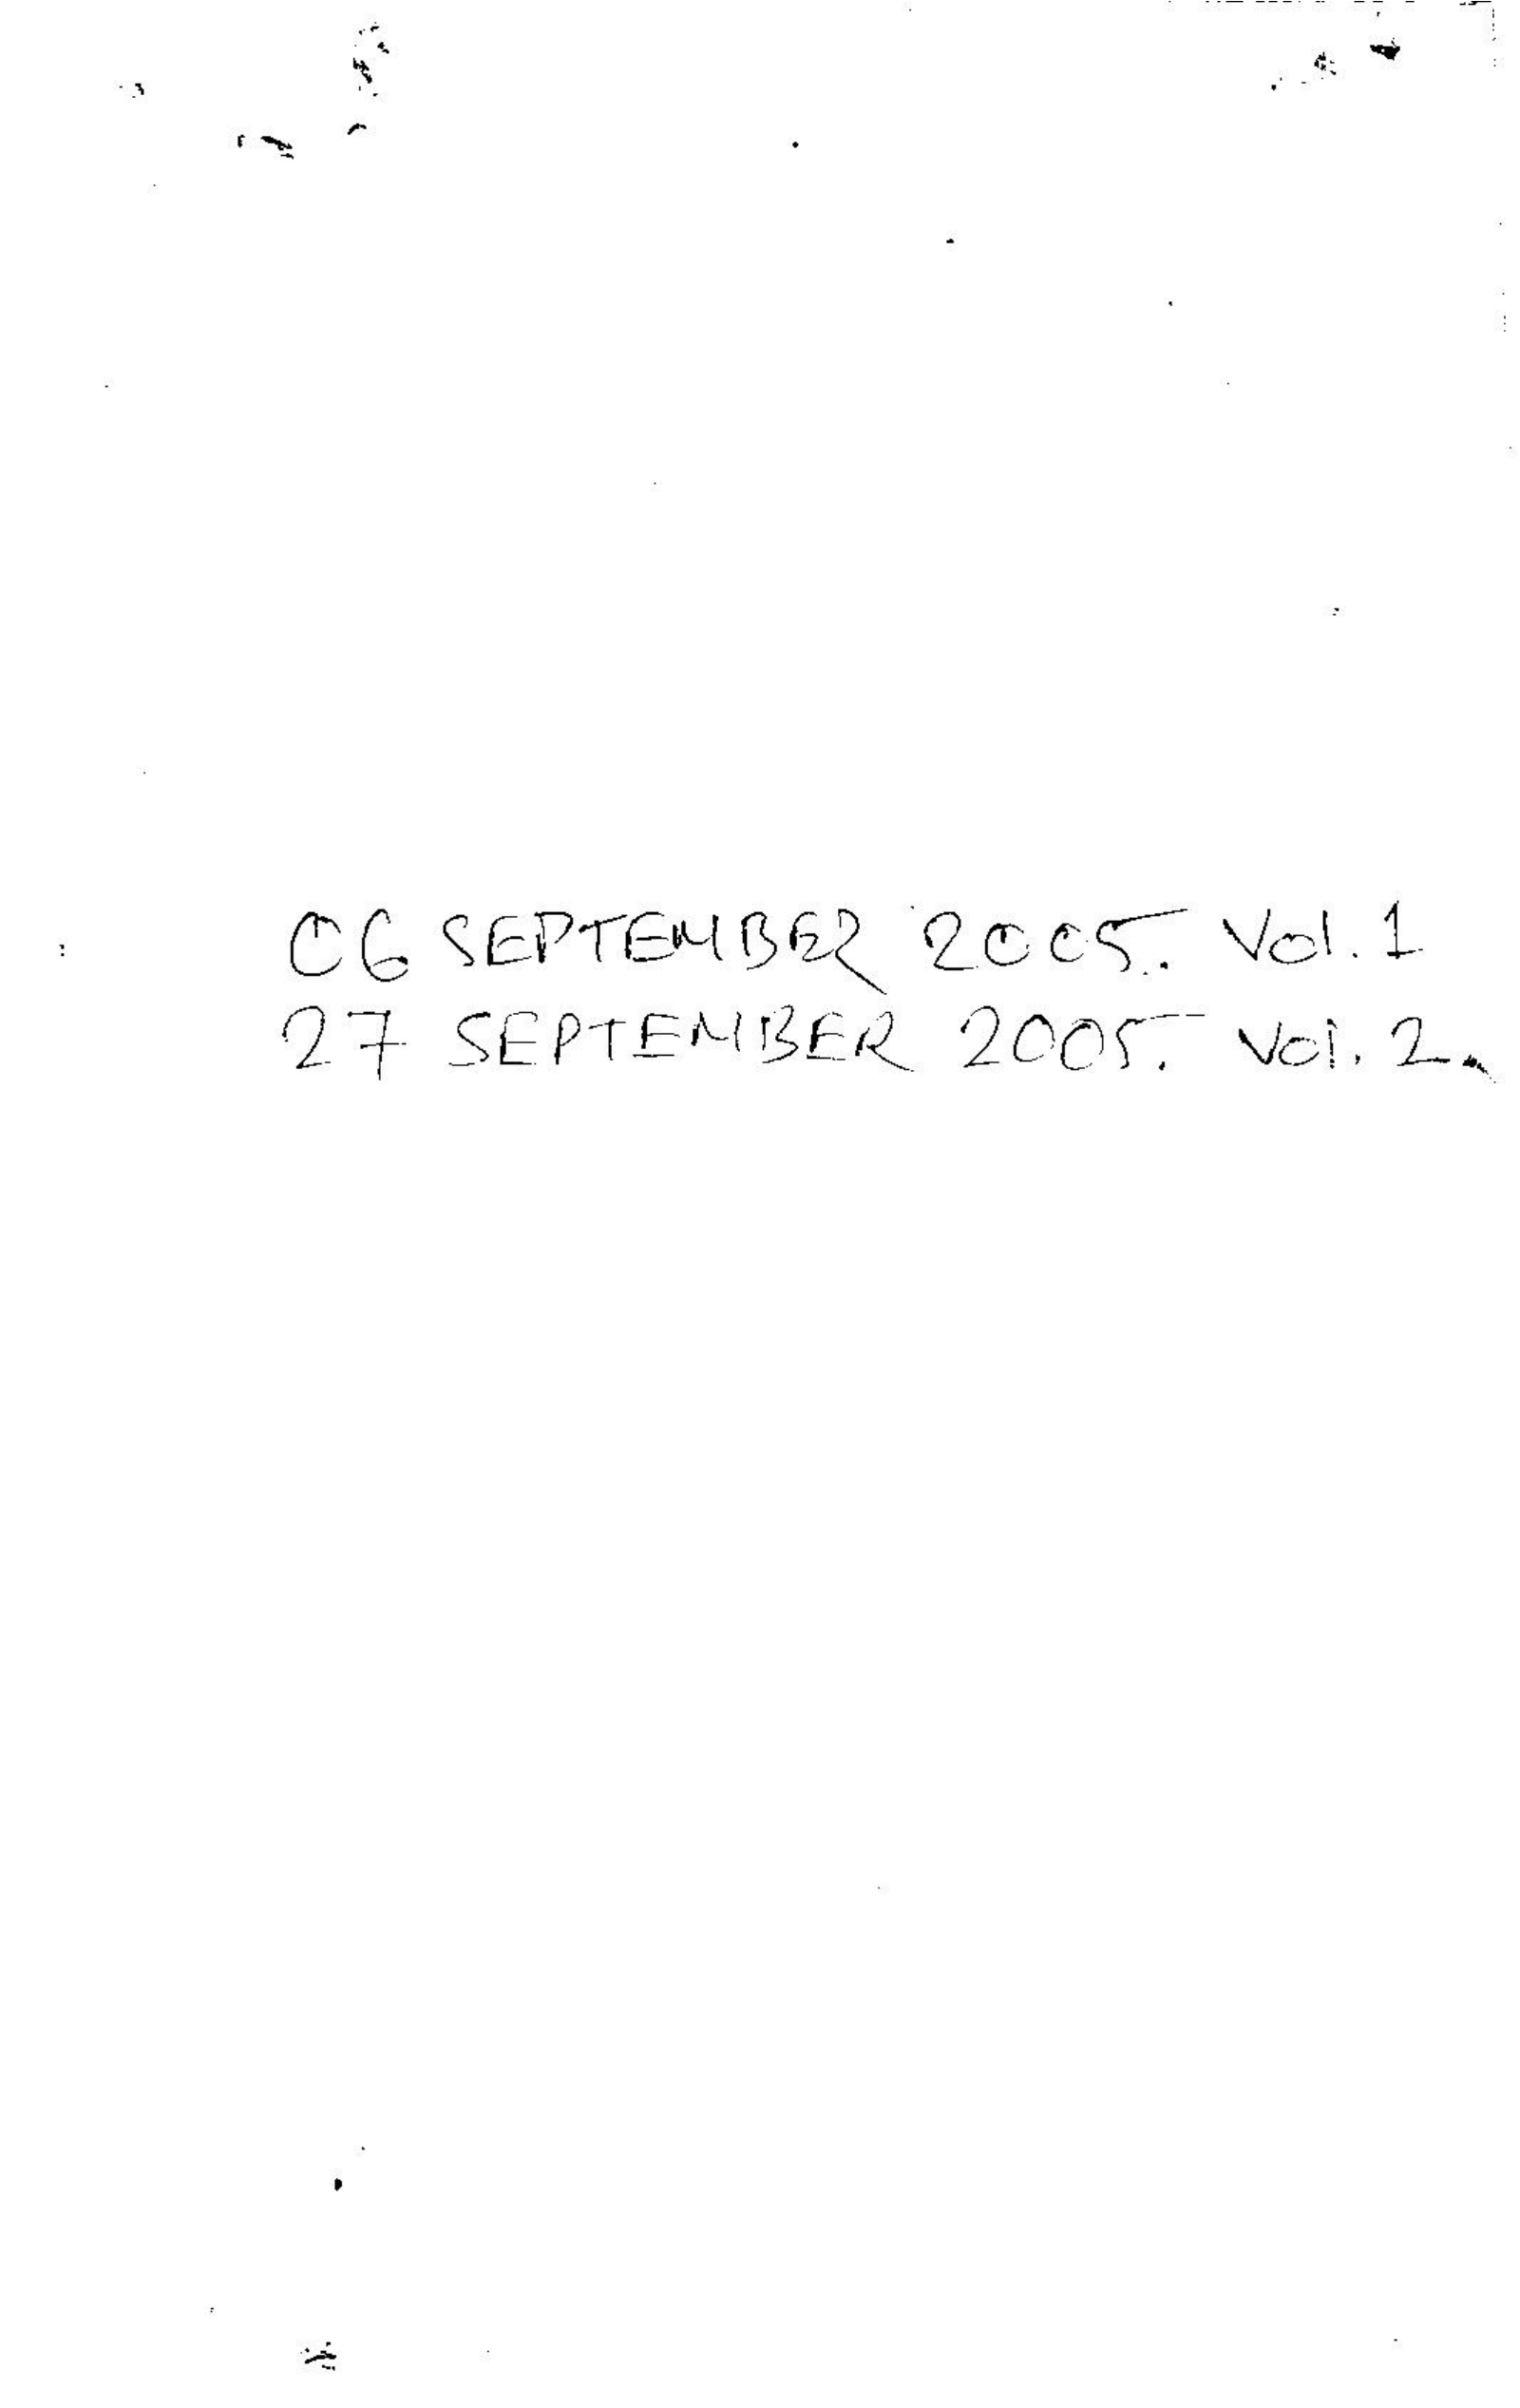 06 SEPTEMBER 2005. Vol. 1
27 SEPTEMBER 2005. Vol. 2.